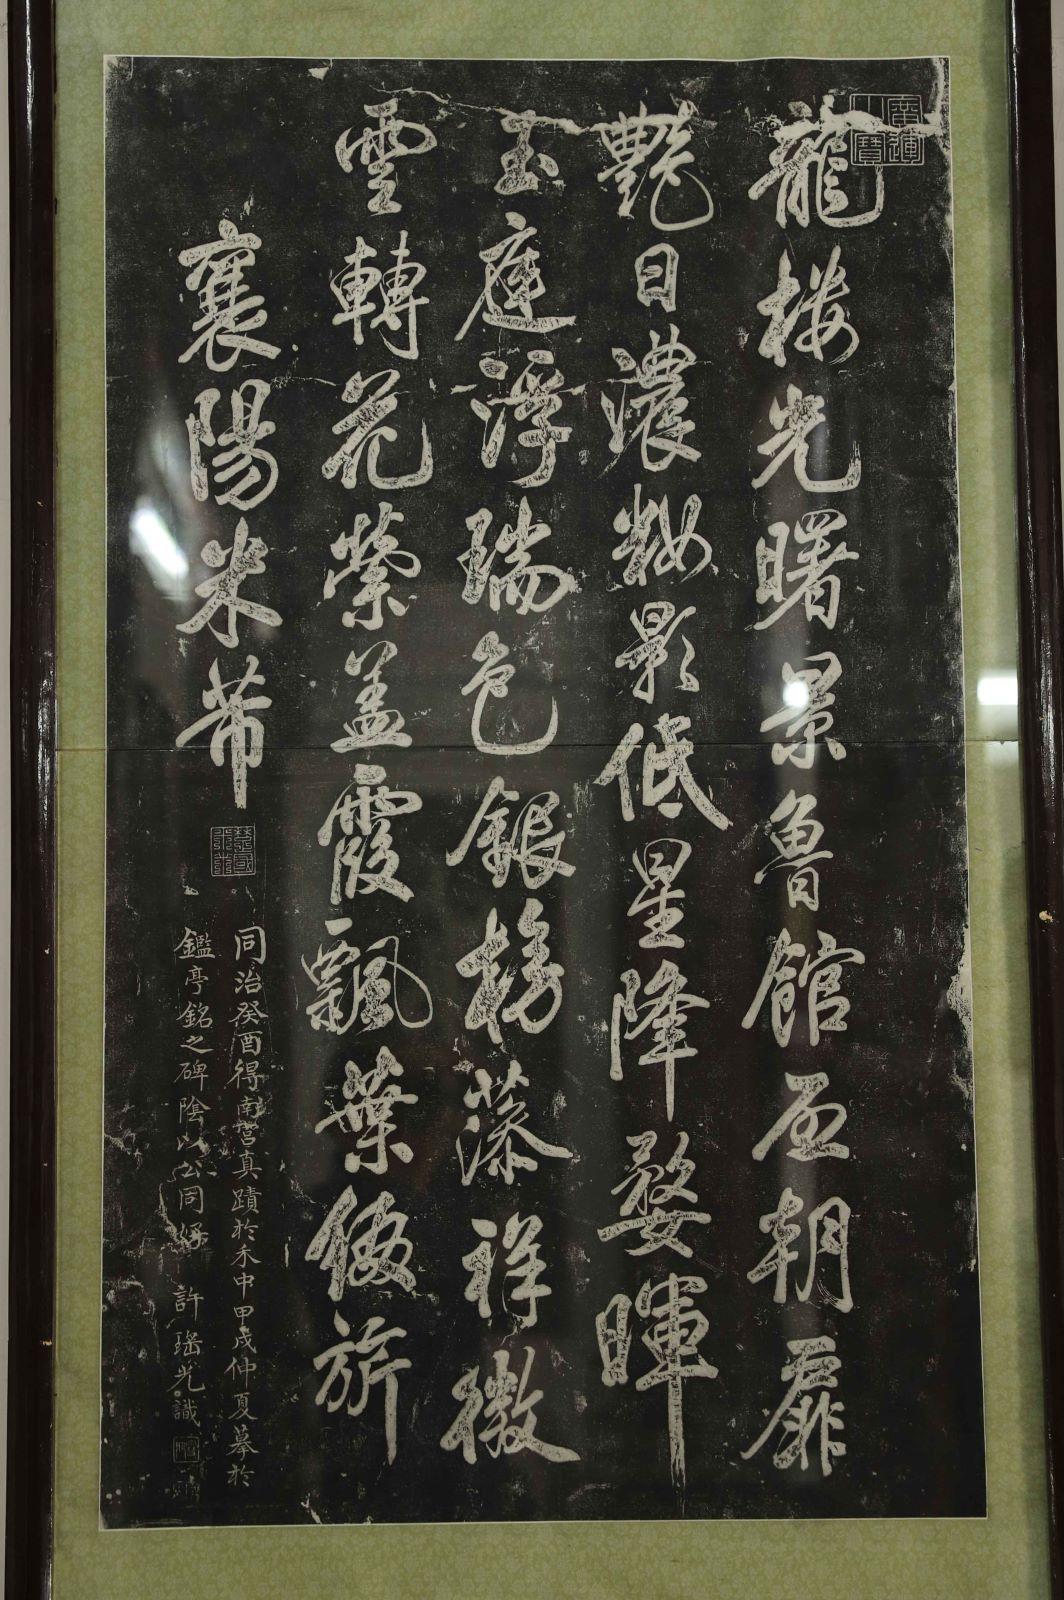 龍楼光曙景魯館启朝扉
艷日濃粧影低星降婺暉
玉庭浮瑞色銀榜藻祥徽
雲轉花縈盖霞飄葉綴旂
襄陽米芾
同治癸酉得南宫真蹟於禾中甲戌仲夏摹於
鑑亭銘之碑陰以公同好 許瑤光識